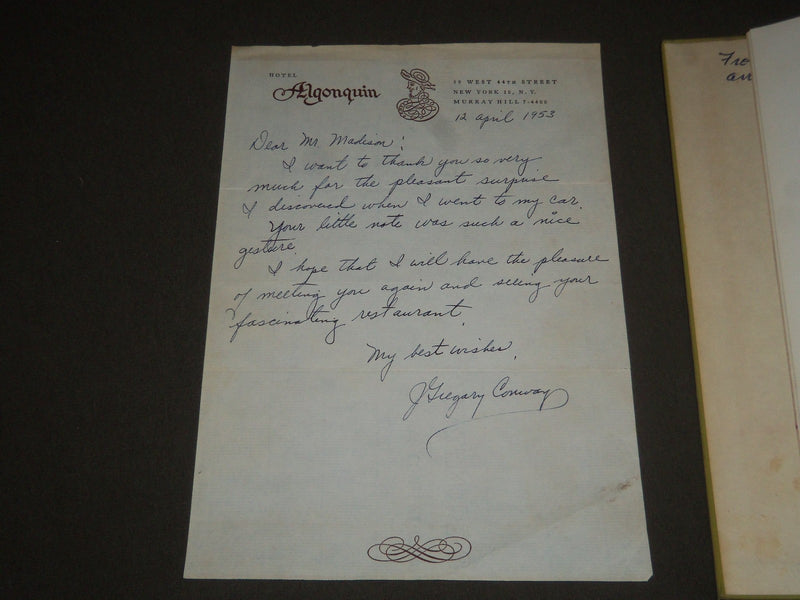 HOTEL
Algonquin
59 WEST 44TH STREET
NEW YORK 18, N.Y.
MURRAY HILL 7-4400
12 april 1953
Dear Mr. Madison:
I want to thank you so very
much for the pleasant surprise
I discovered when I went to my car.
Your little note was such a nice
gesture.
I hope that I will have the pleasure
of meeting you again and seeing your
fascinating restaurant.
My best wishes,
J Gregary Conway
Fre